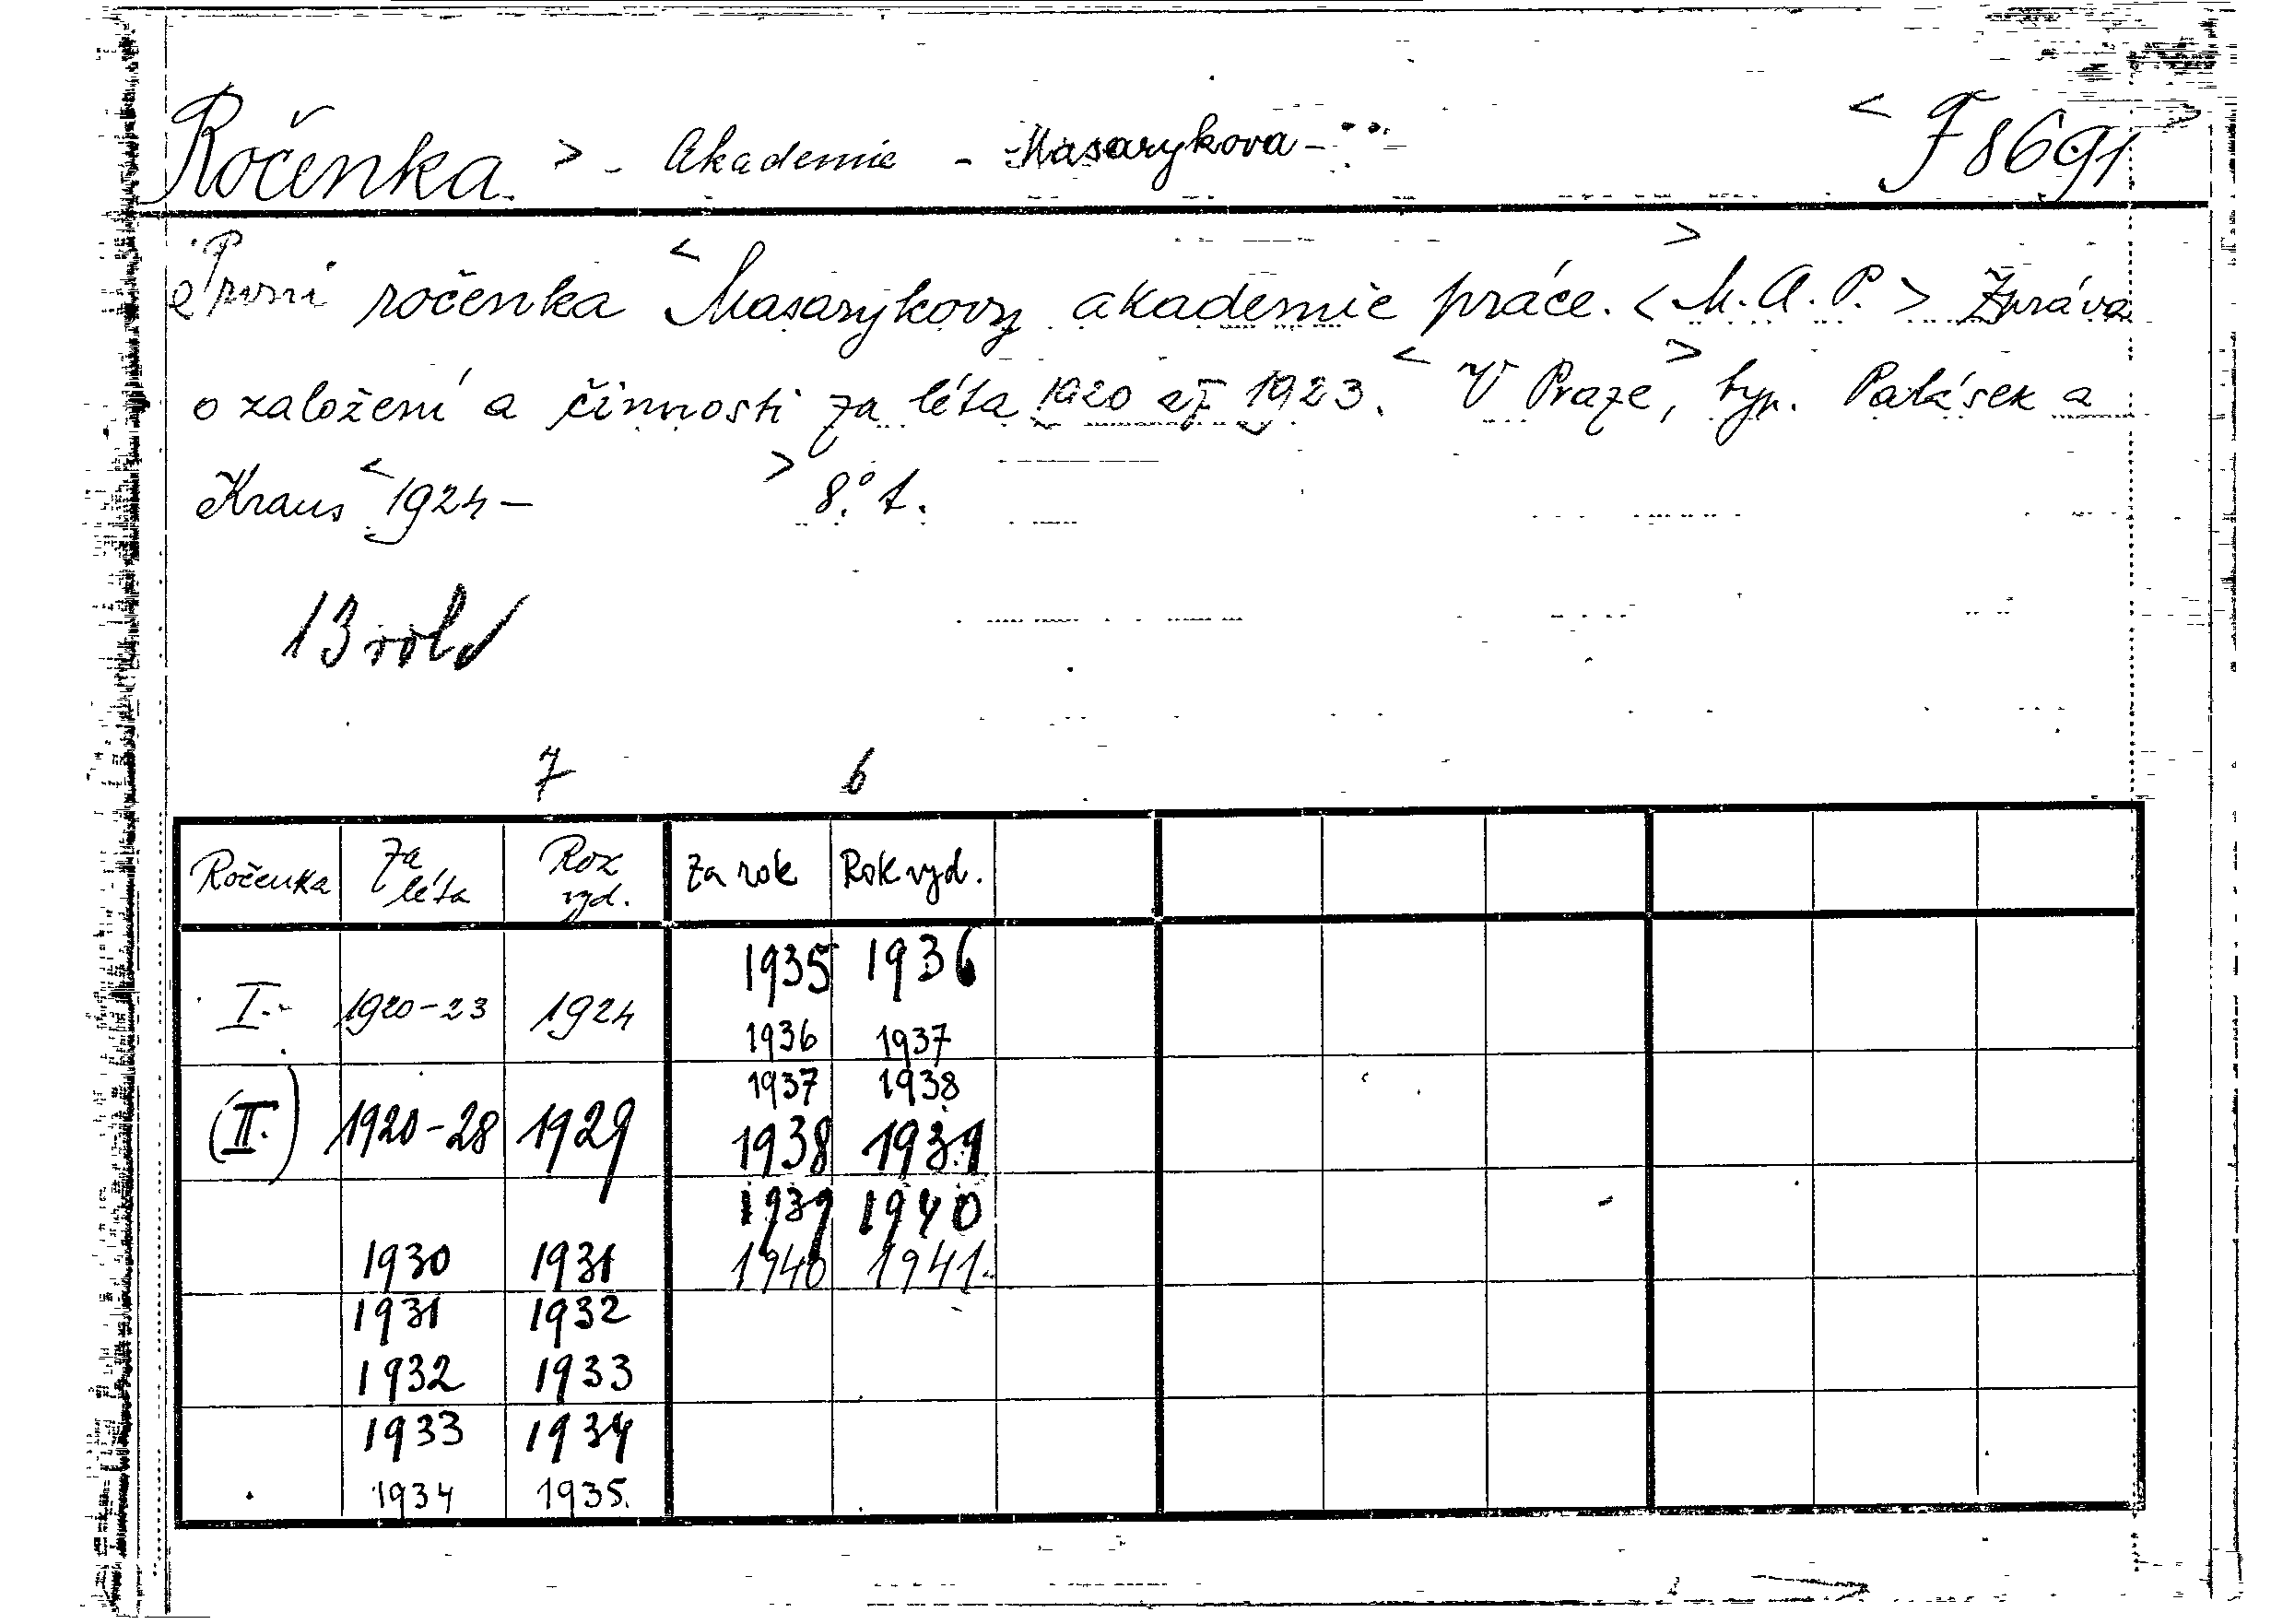 Ročenka. > - Akademie - Masarykova - < F 8691 >
První ročenka < Masarykovy akademie práce. > < M. A. P. > Zpráva
o založení a činnosti za léta 1920 až 1923. < V Praze >, typ. Patásek a
Kraus < 1924 - > 8.° t.
13
7 6
Ročenka Za léta Rok vyd. Za rok Rok vyd.
1935 1936
I. 1920-23 1924
1936 1937
1937 1938
(II.) 1920-28 1929 1938 1939
1939 1940
1930 1931 1940 1941.
1931 1932
1932 1933
1933 1934
1934 1935.